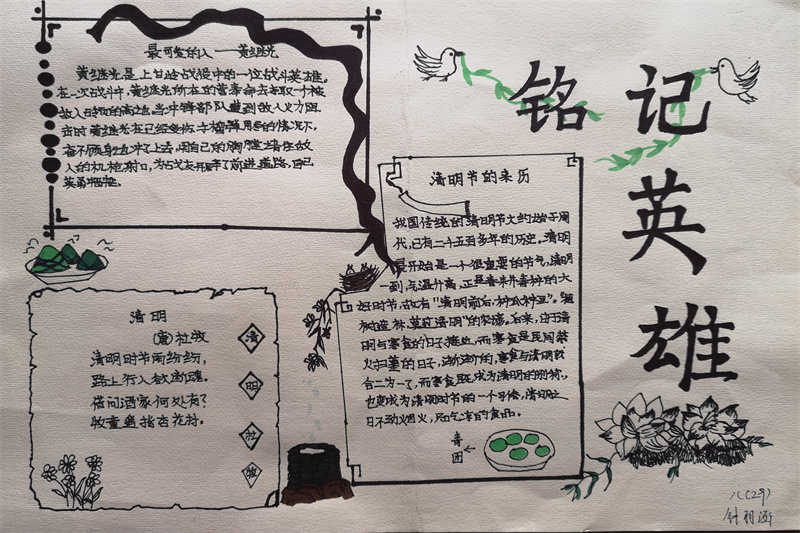 最可爱的人——黄继光
黄继光是上甘岭战役中的一位战斗英雄。
在一次战斗中,黄继光所在的营奉命去夺取一个被
敌人占领的高地,当冲锋部队遭到敌人火力阻
击时,黄继光在已经负伤
奋不顾身地冲了上去,用自己的胸膛堵住敌
人的机枪射口,为战友开辟了前进道路,自己
英勇牺牲。
铭记
英
雄
清明节的来历
我国传统的清明节大约始于周
代,已有二千五百多年的历史。清明
最开始是一个很重要的节气,清明
一到,气温升高,正是春耕春种的大
好时节,故有“清明前后,种瓜种豆”。“植
树造林,莫过清明”的农谚。后来,由于清
明与寒食的日子接近,而寒食是民间禁
火扫墓的日子,渐渐的,寒食与清明就
合二为一了,而寒食既成为清明的别称,
也变成为清明时节的一个习俗,清明之
日不动烟火,只吃凉的食品。
青
团
清明
(唐)杜牧
清明时节雨纷纷,
路上行人欲断魂。
借问酒家何处有?
牧童遥指杏花村。
清
明
杜
牧
八(29)